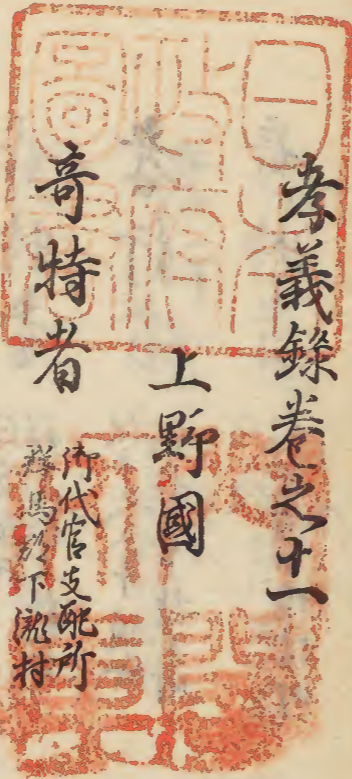 孝義録巻之十一
上野國
奇特者
御代官支配所
群馬郡下瀧村